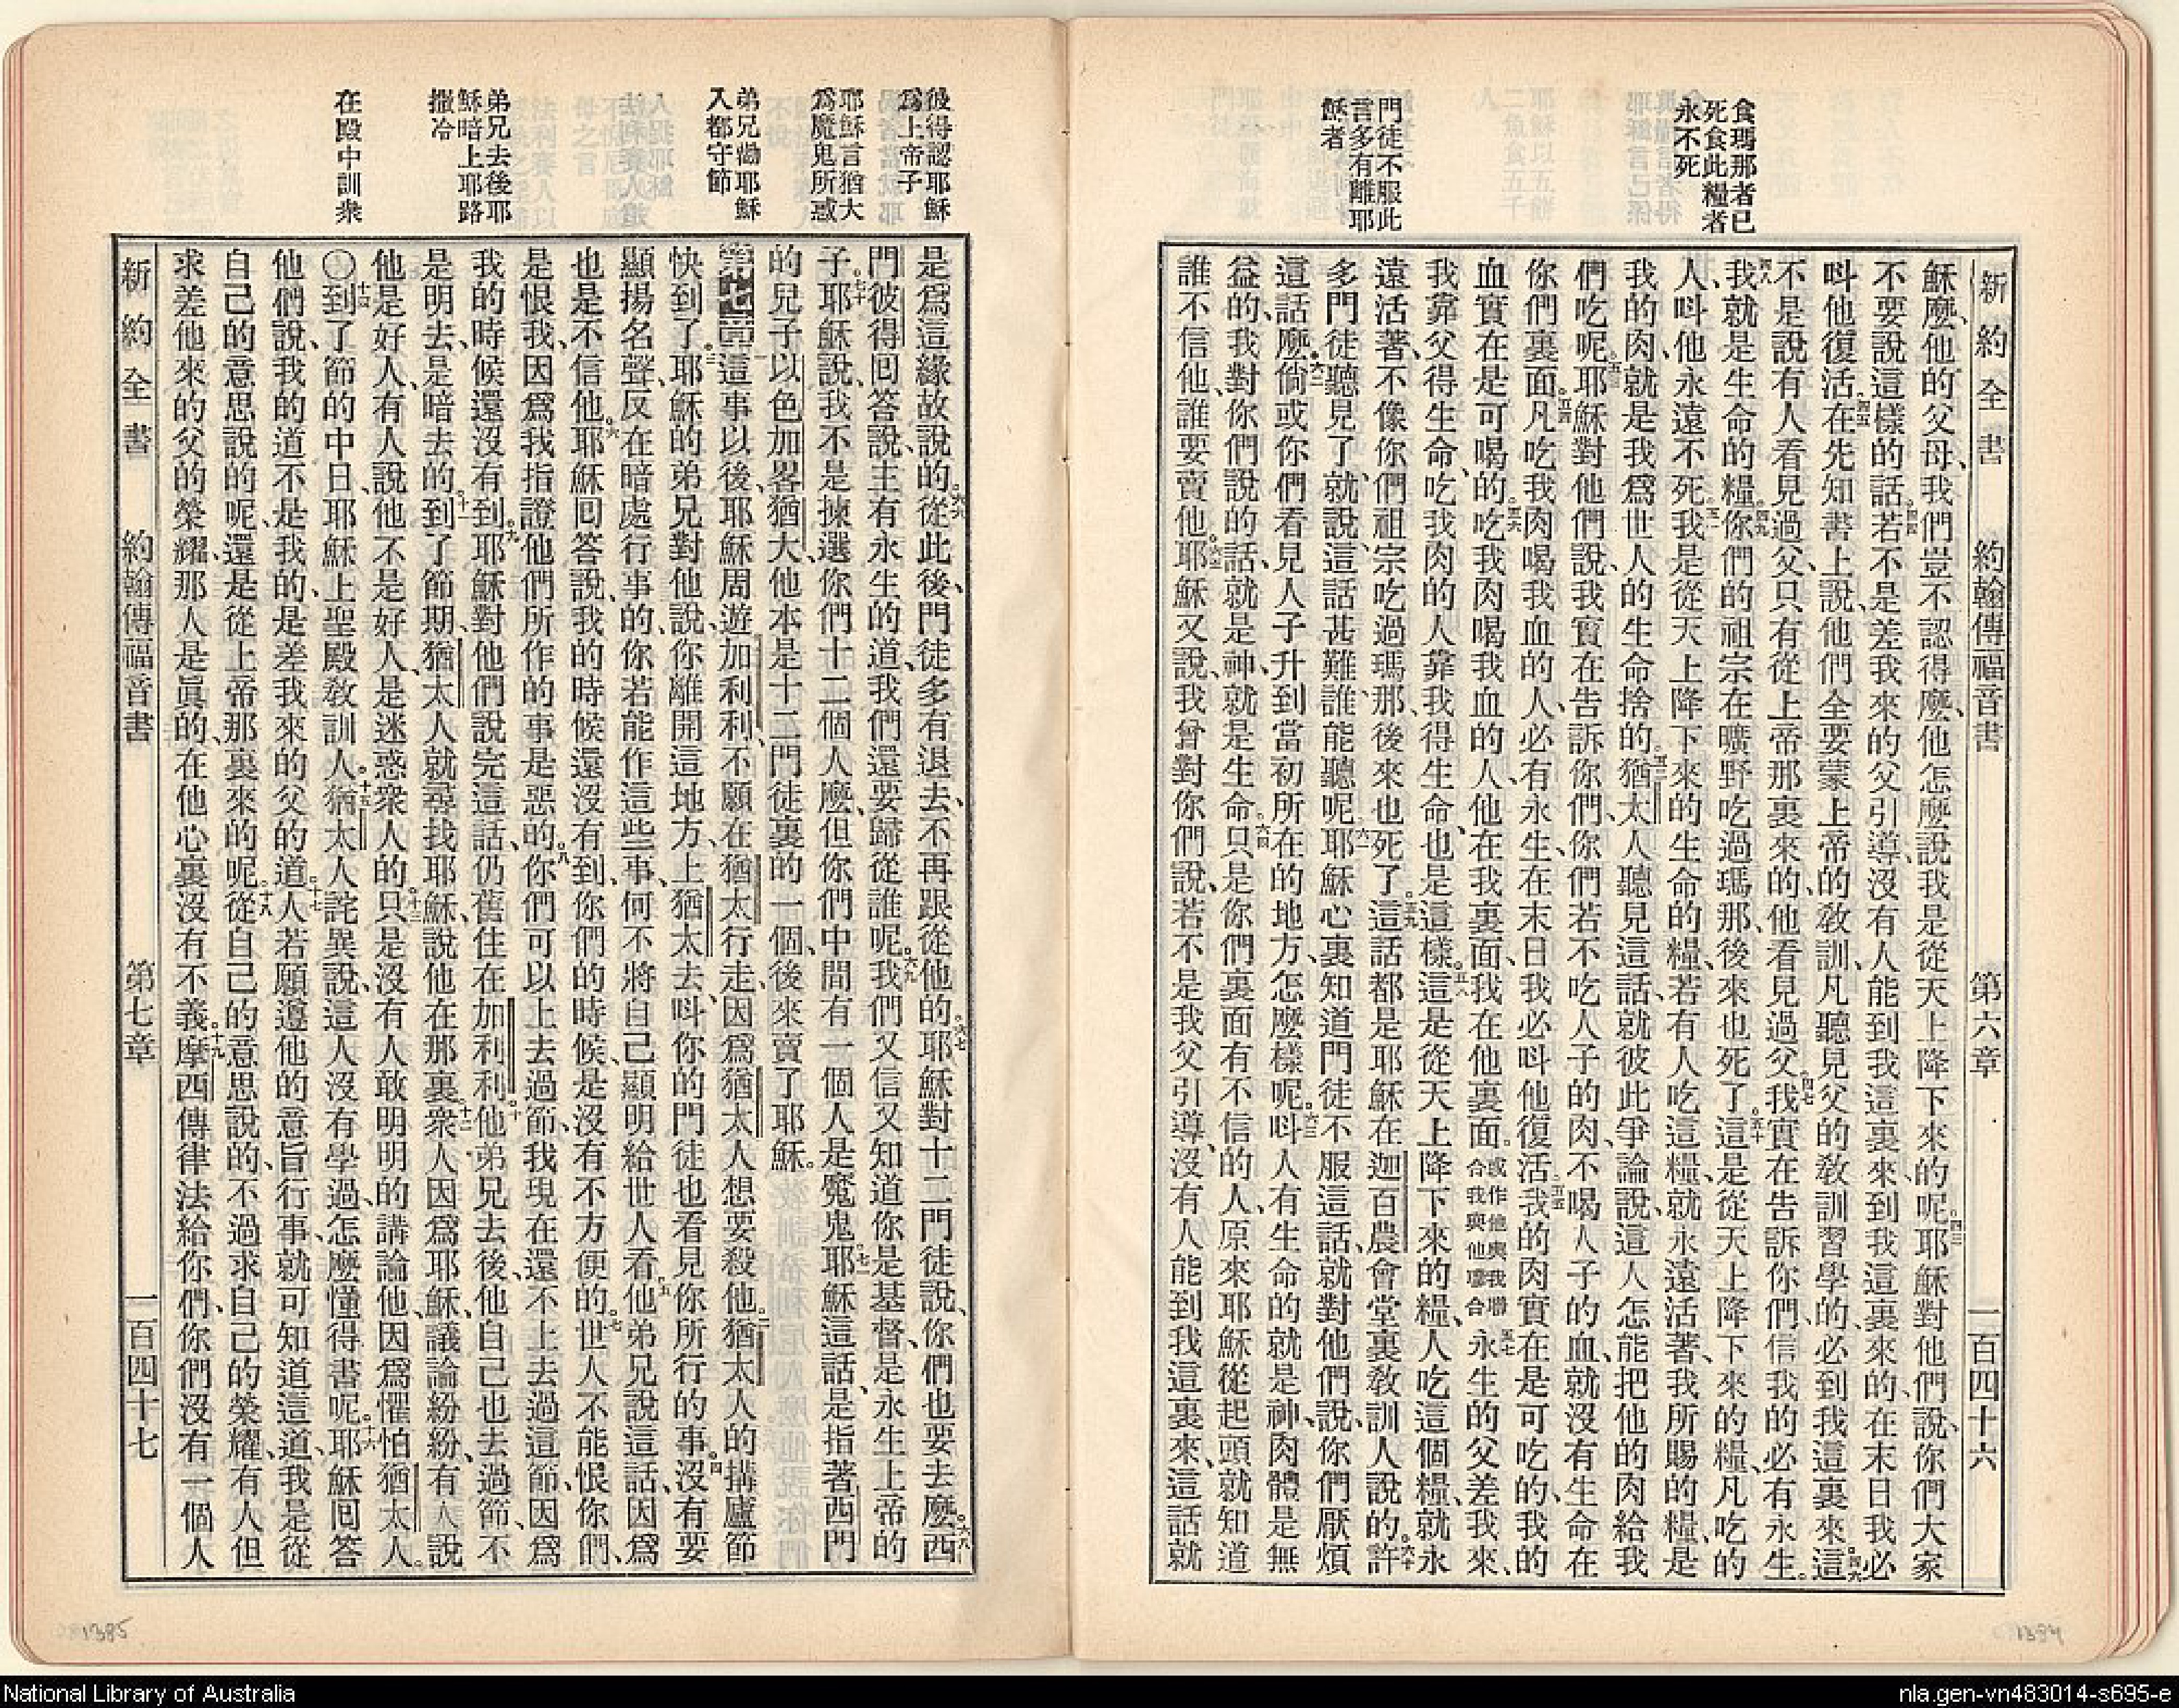 食瑪那者已
死食此糧者
永不死
門徒不服此
言多有離耶
穌者
新約全書 約翰傳福音書 第六章 一百四十六
穌麼、他的父母、我們豈不認得麼、他怎麼說我是從天上降下來的呢。四三耶穌對他們說、你們大家
不要說這樣的話。四四若不是差我來的父引導、沒有人能到我這裏來、到我這裏來的、在末日我必
呌他復活。四五在先知書上說、他們全要蒙上帝的教訓、凡聽見父的教訓習學的、必到我這裏來。四六這
不是說有人看見過父、只有從上帝那裏來的、他看見過父。四七我實在告訴你們、信我的必有永生。
四八我就是生命的糧。四九你們的祖宗在曠野吃過瑪那、後來也死了。五十這是從天上降下來的糧、凡吃的
人、呌他永遠不死。五一我是從天上降下來的生命的糧、若有人吃這糧、就永遠活著、我所賜的糧、是
我的肉、就是我爲世人的生命捨的。五二猶太人聽見這話、就彼此爭論說、這人怎能把他的肉給我
們吃呢。五三耶穌對他們說、我實在告訴你們、你們若不吃人子的肉、不喝人子的血、就沒有生命在
你們裏面。五四凡吃我肉喝我血的人、必有永生、在末日我必呌他復活。五五我的肉實在是可吃的、我的
血實在是可喝的。五六吃我肉喝我血的人、他在我裏面、我在他裏面。或作他與我聯合我與他聯合五七永生的父差我來、
我靠父得生命、吃我肉的人靠我得生命、也是這樣。五八這是從天上降下來的糧、人吃這個糧、就永
遠活著、不像你們祖宗吃過瑪那、後來也死了。五九這話都是耶穌在迦百農會堂裏教訓人說的。六十許
多門徒聽見了、就說、這話甚難、誰能聽呢。六一耶穌心裏知道門徒不服這話、就對他們說、你們厭煩
這話麼。六二倘或你們看見人子升到當初所在的地方、怎麼樣呢。六三呌人有生命的就是神、肉體是無
益的、我對你們說的話、就是神、就是生命。六四只是你們裏面有不信的人、原來耶穌從起頭就知道
誰不信他、誰要賣他。六五耶穌又說、我曾對你們說、若不是我父引導、沒有人能到我這裏來、這話就
彼得認耶穌
爲上帝子
耶穌言猶大
爲魔鬼所惑
弟兄勸耶穌
入都守節
弟兄去後耶
穌暗上耶路
撒冷
在殿中訓衆
是爲這緣故說的。六六從此後、門徒多有退去、不再跟從他的。六七耶穌對十二門徒說、你們也要去麼。六八西
門彼得囘答說、主有永生的道、我們還要歸從誰呢。六九我們又信又知道你是基督、是永生上帝的
子。七十耶穌說、我不是揀選你們十二個人麼、但你們中間有一個人是魔鬼。七一耶穌這話、是指著西門
的兒子以色加畧猶大、他本是十二門徒裏的一個、後來賣了耶穌。
第七章一這事以後、耶穌周遊加利利、不願在猶太行走、因爲猶太人想要殺他。二猶太人的搆廬節
快到了。三耶穌的弟兄對他說、你離開這地方、上猶太去、呌你的門徒也看見你所行的事。四沒有要
顯揚名聲、反在暗處行事的、你若能作這些事、何不將自己顯明給世人看。五他弟兄說這話、因爲
也是不信他。六耶穌囘答說、我的時候還沒有到、你們的時候、是沒有不方便的。七世人不能恨你們、
是恨我、因爲我指證他們所作的事是惡的。八你們可以上去過節、我現在還不上去過這節、因爲
我的時候還沒有到。九耶穌對他們說完這話、仍舊住在加利利。十他弟兄去後、他自己也去過節、不
是明去、是暗去的。十一到了節期、猶太人就尋找耶穌、說他在那裏。十二衆人因爲耶穌、議論紛紛、有人說
他是好人、有人說他不是好人、是迷惑衆人的。十三只是沒有人敢明明的講論他、因爲懼怕猶太人。
〇十四到了節的中日、耶穌上聖殿教訓人。十五猶太人詫異說、這人沒有學過、怎麼懂得書呢。十六耶穌囘答
他們說、我的道不是我的、是差我來的父的道。十七人若願遵他的意旨行事、就可知道這道、我是從
自己的意思說的呢、還是從上帝那裏來的呢。十八從自己的意思說的、不過求自己的榮耀、有人但
求差他來的父的榮耀、那人是眞的、在他心裏沒有不義。十九摩西傳律法給你們、你們沒有一個人
新約全書 約翰傳福音書 第七章 一百四十七
1385
1384
National Library of Australia
nla.gen-vn483014-s695-e